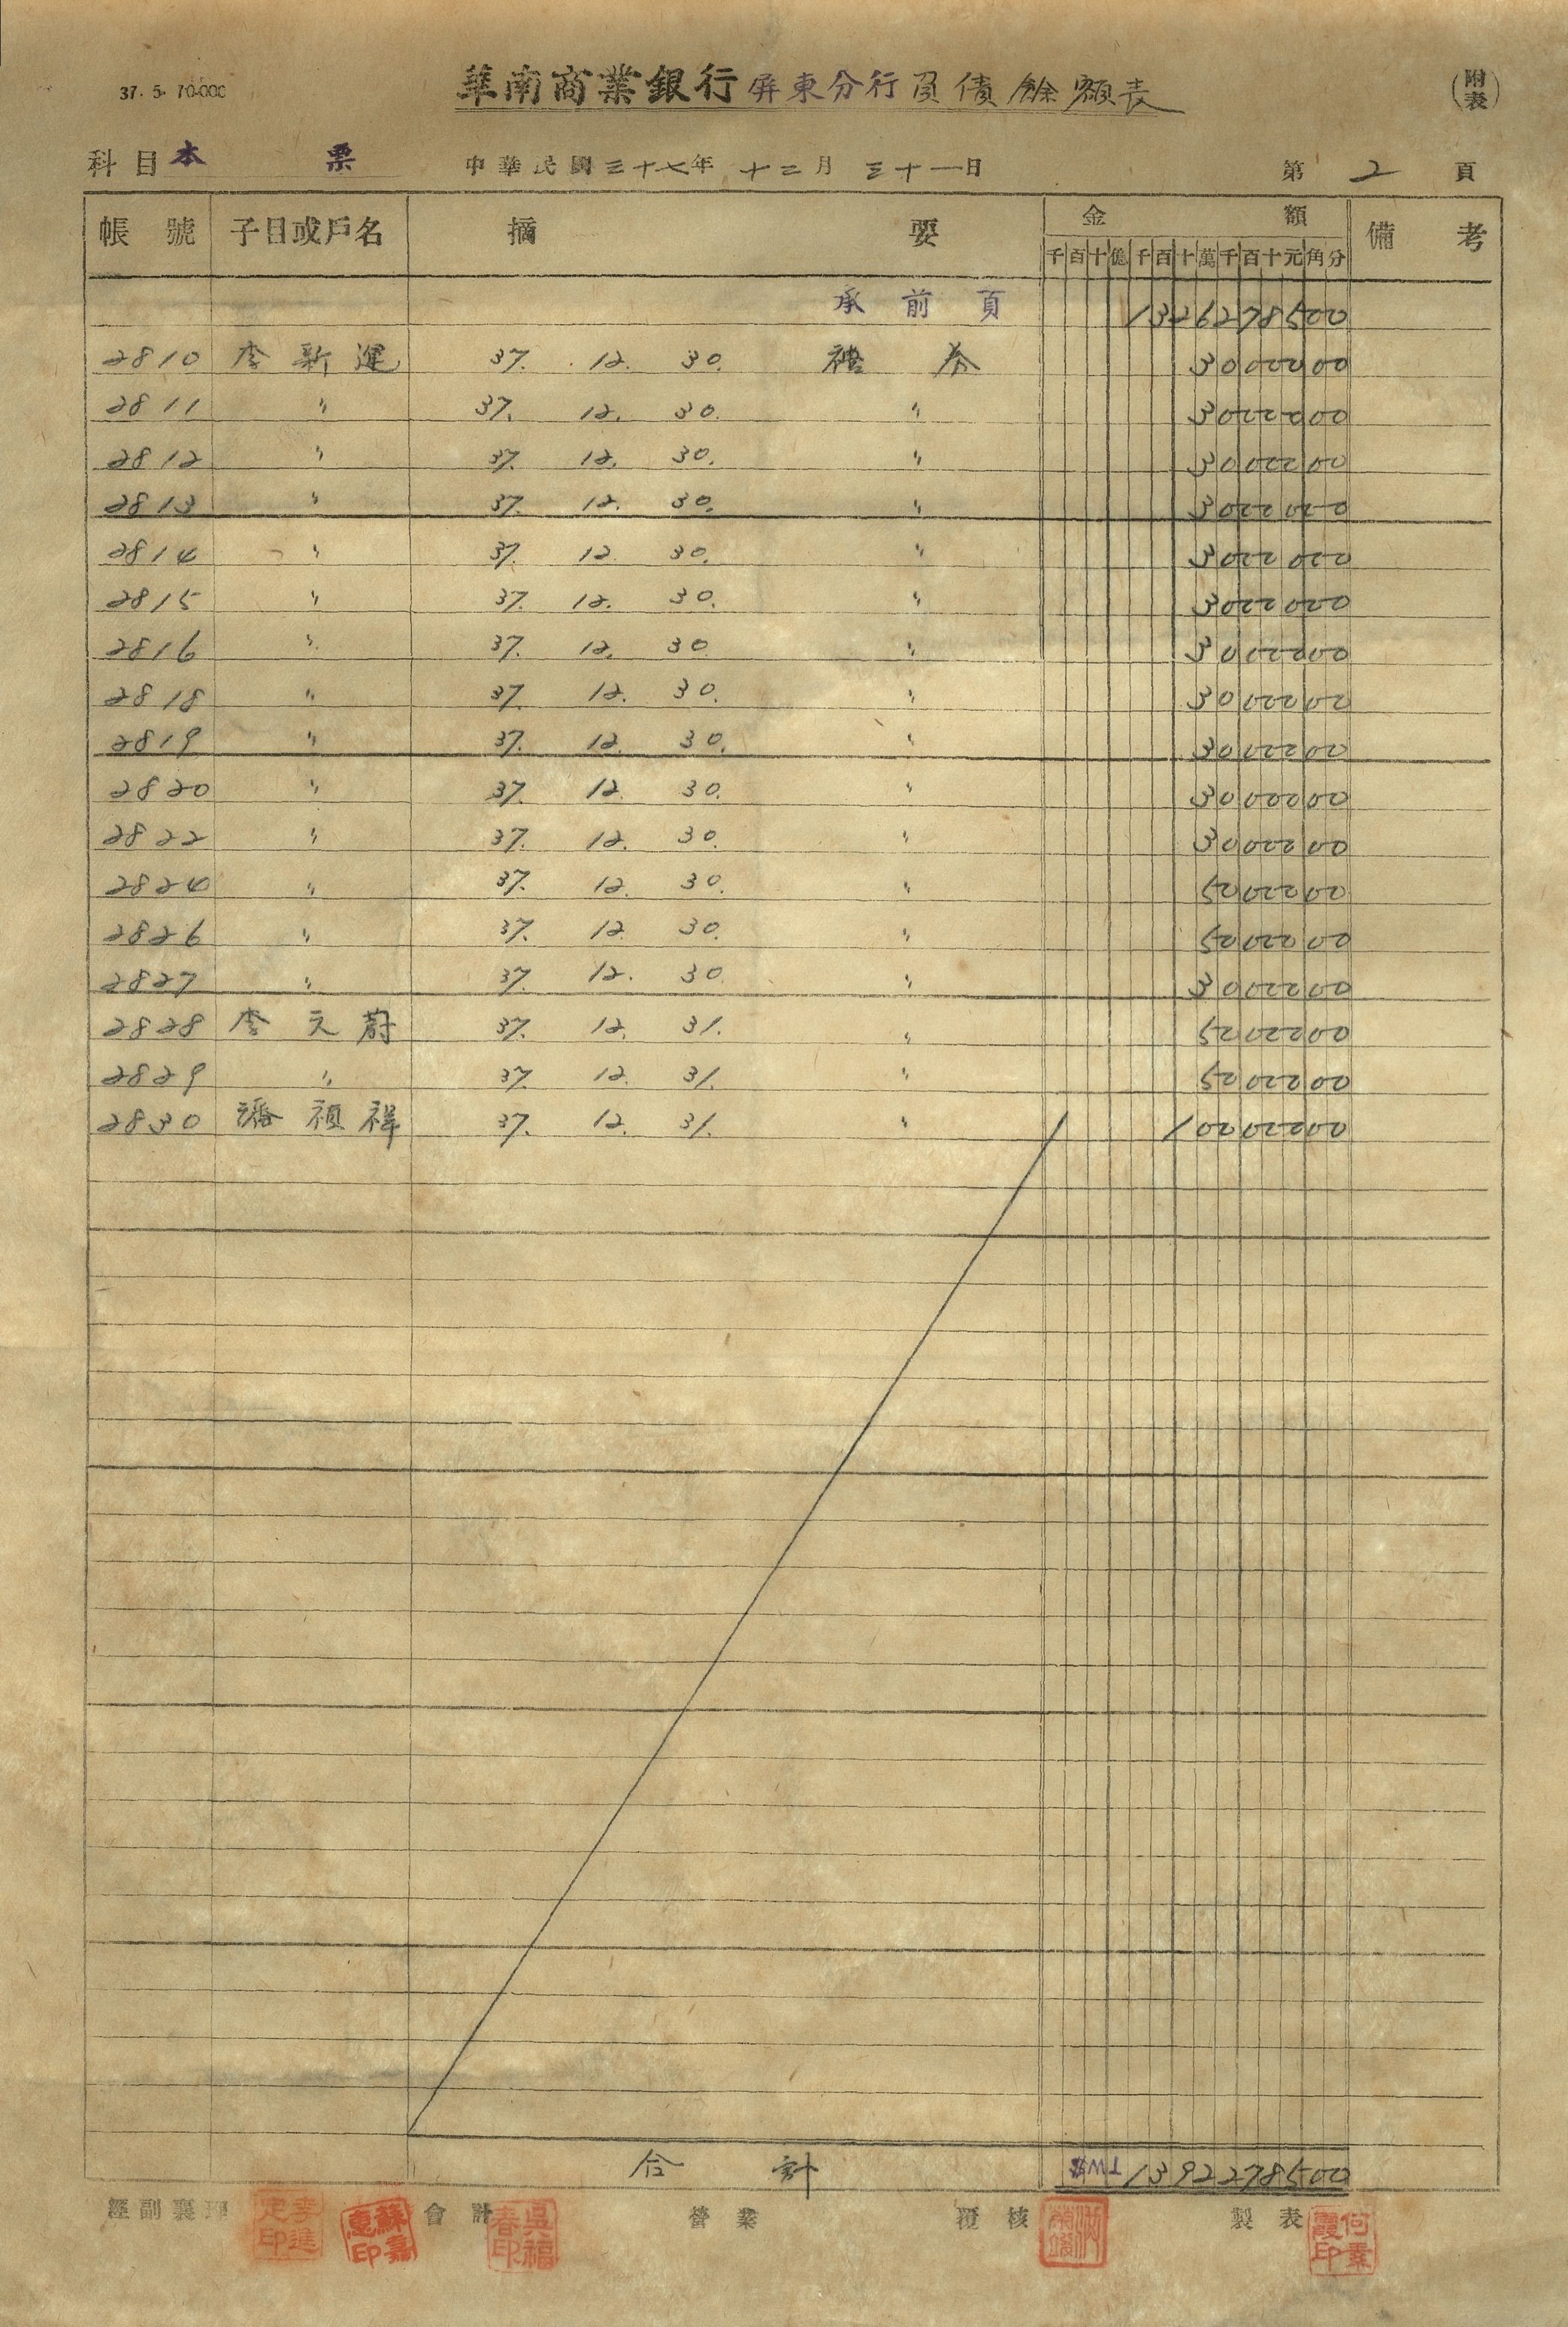 37. 5. 70.000
華南商業銀行屏東分行負債餘額表
(附表)
科目 本 票 中華民國三十七年 十二月 三十一日 第 2 頁
帳號 子目或戶名 摘要 金額 備考
千百十億千百十萬千百十元角分
承前頁 1326278500
2810 李新運 37. 12. 30. 30000000
2811 〃 37. 12. 30. 〃 30000000
2812 〃 37. 12. 30. 〃 30000000
2813 〃 37. 12. 30. 〃 30000000
2814 〃 37. 12. 30. 〃 30000000
2815 〃 37. 12. 30. 〃 30000000
2816 〃 37. 12. 30 〃 30000000
2818 〃 37. 12. 30. 〃 30000000
2819 〃 37. 12. 30. 〃 30000000
2820 〃 37. 12. 30. 〃 30000000
2822 〃 37. 12. 30. 〃 30000000
2824 〃 37. 12. 30. 〃 5000000
2826 〃 37. 12. 30. 〃 5000000
2827 〃 37. 12. 30 〃 30000000
2828 李天蔚 37. 12. 31. 〃 5000000
2829 〃 37. 12. 31. 〃 5000000
2830 潘禎祥 37. 12. 31. 〃 100000000
合計 TW$ 1392278500
經副襄理 會計 營業 覆核 製表
李進定印
蘇嘉惠印
吳福春印